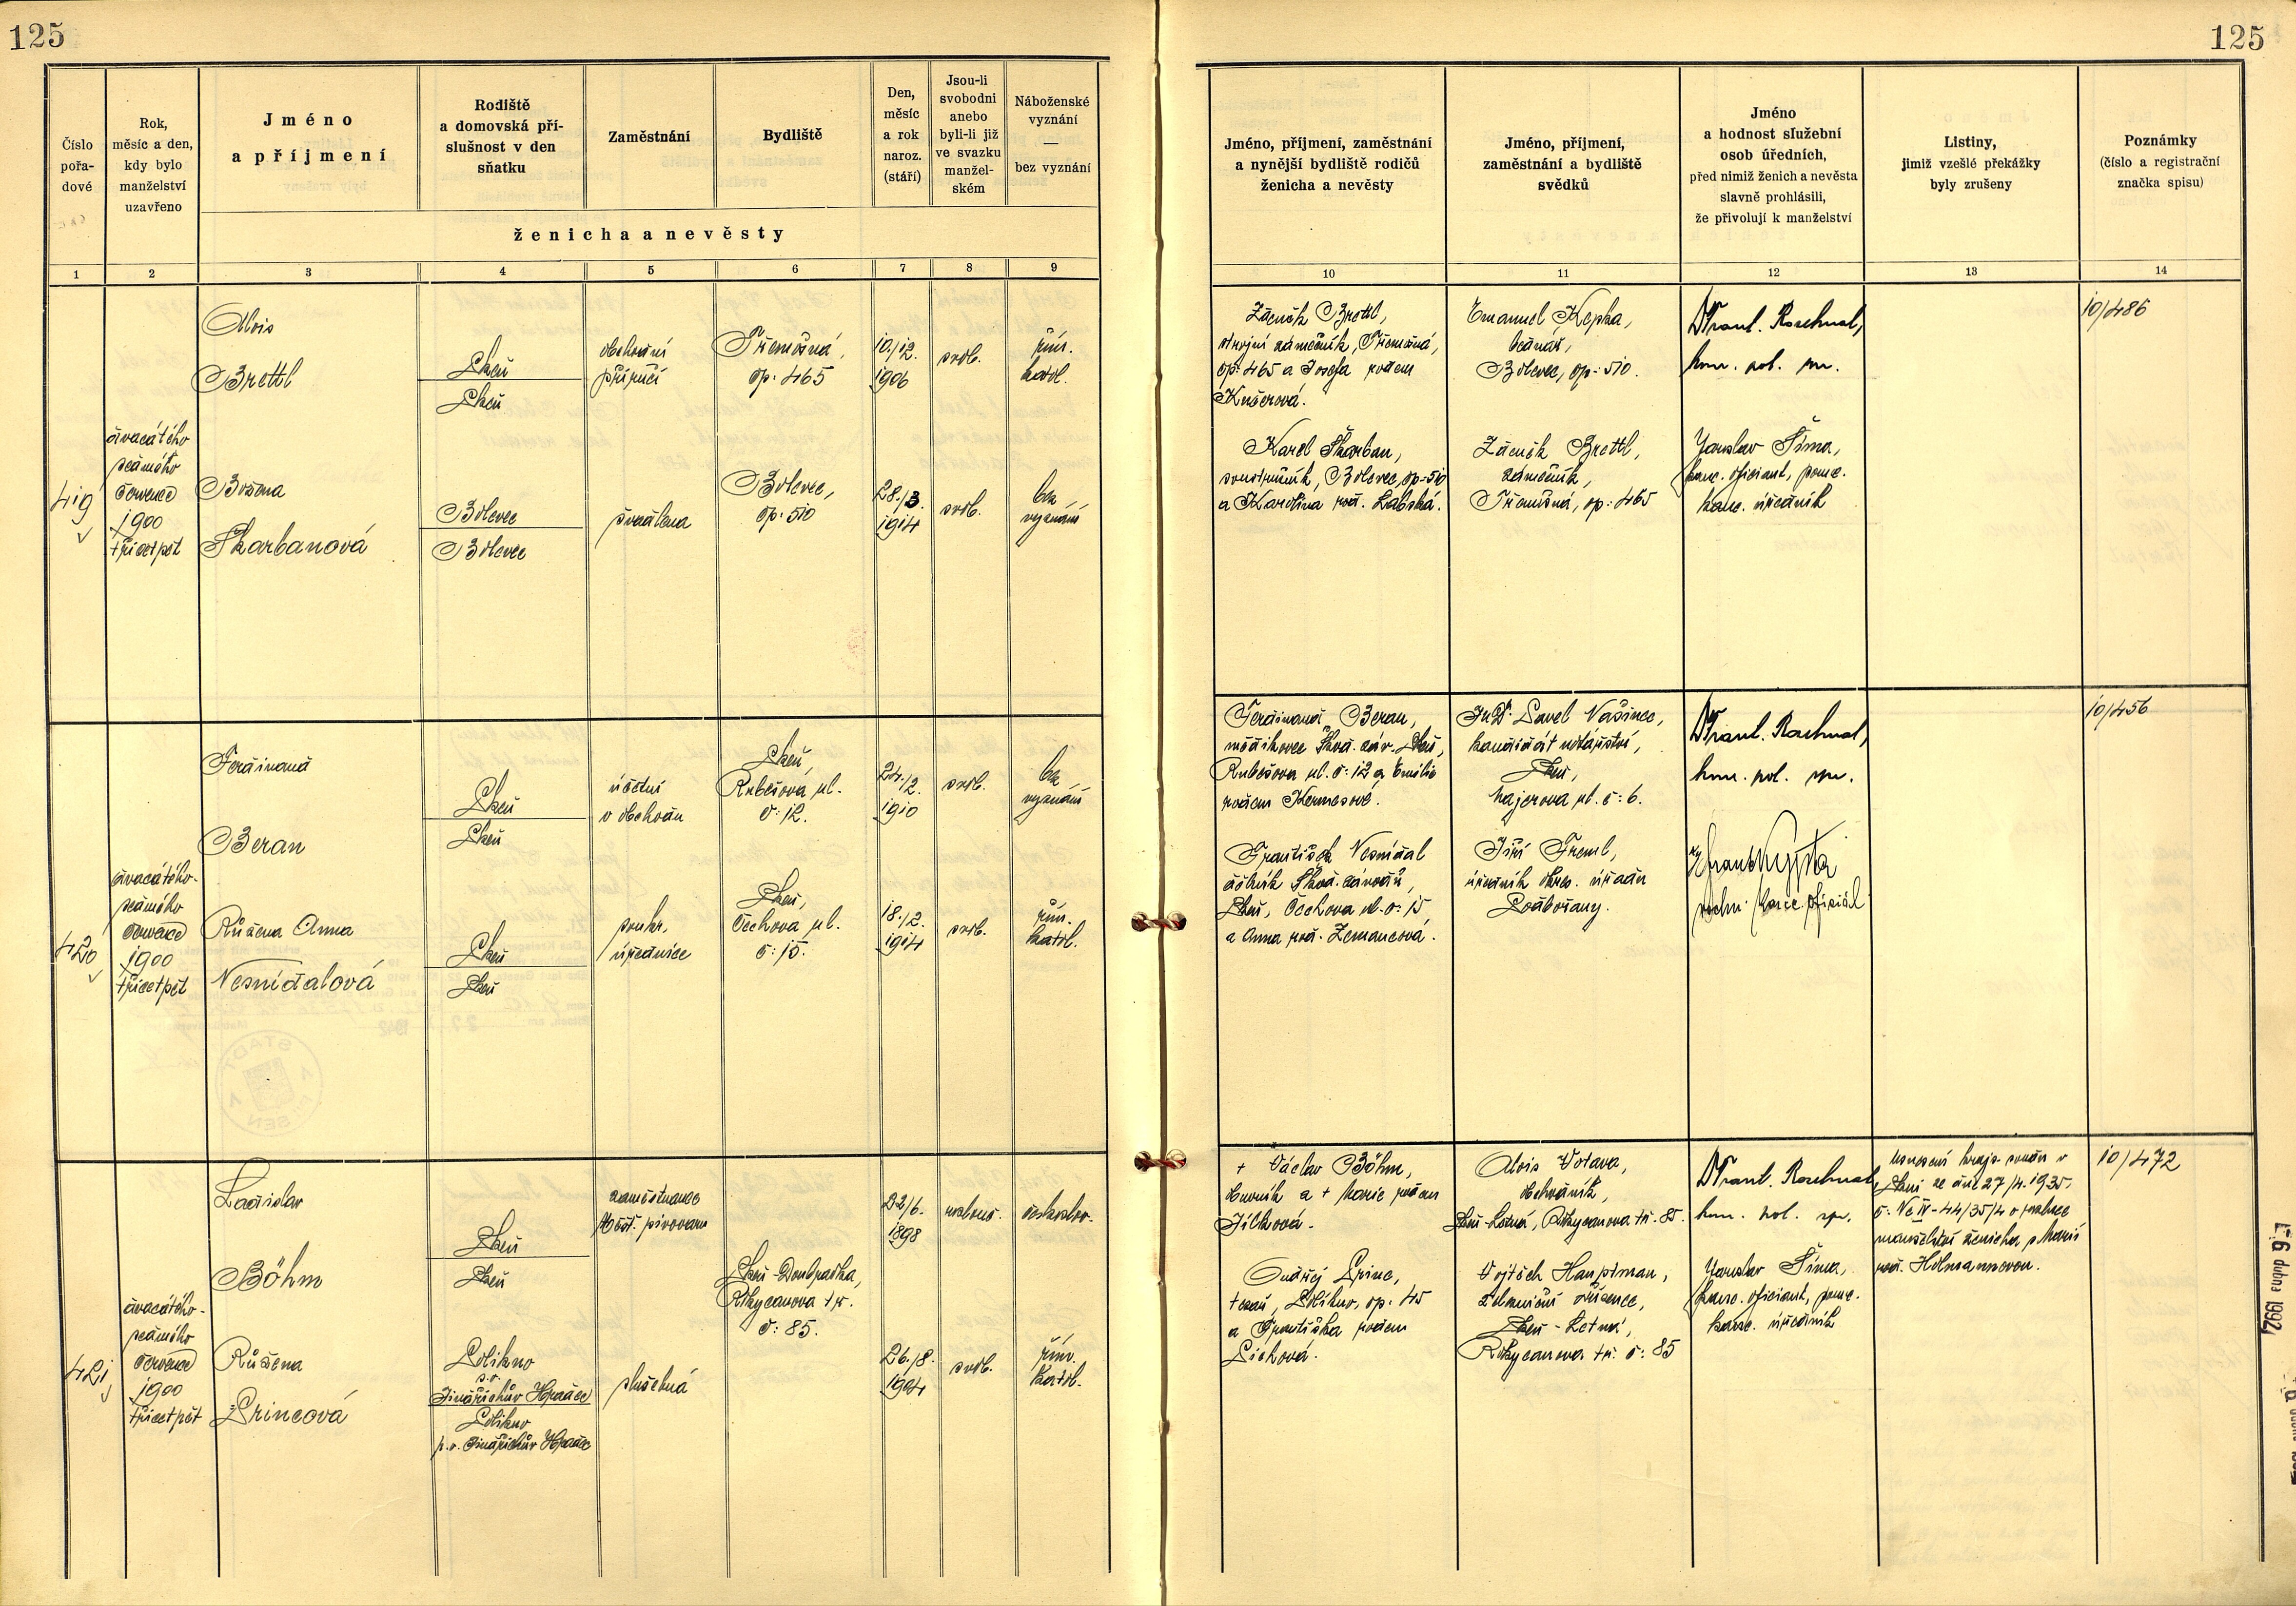 125
125
Číslo
pořa-
dové
Rok,
měsíc a den,
kdy bylo
manželství
uzavřeno
Jméno
a příjmení
Rodiště
a domovská pří-
slušnost v den
sňatku
Zaměstnání
Bydliště
Den,
měsíc
a rok
naroz.
(stáří)
Jsou-li
svobodni
anebo
byli-li již
ve svazku
manžel-
ském
Náboženské
vyznání
—
bez vyznání
ženicha a nevěsty
Jméno, příjmení, zaměstnání
a nynější bydliště rodičů
ženicha a nevěsty
Jméno, příjmení,
zaměstnání a bydliště
svědků
Jméno
a hodnost služební
osob úředních,
před nimiž ženich a nevěsta
slavně prohlásili,
že přivolují k manželství
Listiny,
jimiž vzešlé překážky
byly zrušeny
Poznámky
(číslo a registrační
značka spisu)
1 2 3 4 5 6 7 8 9 10 11 12 13 14
419
dvacátého
sedmého
července
1900
třicetpět
Alois
Brettl
Plzeň
Plzeň
obchodní
příručí
Třemošná,
čp. 465
10./12.
1906
svob.
řím.
katol.
Zdeněk Brettl,
strojní zámečník, Třemošná,
čp. 465 a Josefa rodem
Kučerová.
Emanuel Kepka,
Bolevec, čp. 510.
Dr Frant. Raschnal,
kom. pol. spr.
10/486
Božena
Škarbanová
Bolevec
Bolevec
švadlena
Bolevec,
čp. 510
28./3.
1914
svob.
bez
vyznání
Karel Škarban,
soustružník, Bolevec, čp. 510
a Karolina rod. Labská.
Zdeněk Brettl,
zámečník,
Třemošná, čp. 465
Jaroslav Šíma,
kanc. oficiant, pomc.
kanc. úředník
420
dvacátého-
sedmého
července
1900
třicetpět
Ferdinand
Beran
Plzeň
Plzeň
účetní
v obchodu
Plzeň,
Rubešova ul.
č. 12.
24./2.
1910
svob.
bez
vyznání
Ferdinand Beran,
Škod. záv. Plzeň,
Rubešova ul. č. 12 a Emilie
rodem Kermesové.
JuDr. Pavel Vašinec,
kandidát notářství,
Plzeň,
Majerova ul. č. 6.
Dr Frant. Raschnal,
kom. pol. spr.
10/456
Růžena Anna
Nesnídalová
Plzeň
Plzeň
soukr.
úřednice
Plzeň,
Čechova ul.
č. 15.
18./2.
1914
svob.
řím.
katol.
František Nesnídal
dělník Škod. závodů,
Plzeň, Čechova ul. č. 15
a Anna rod. Zemancová.
Jiří Treml,
úředník okres. úřadu
Podbořany.
kanc. oficiál
421
dvacátého-
sedmého
července
1900
třicetpět
Ladislav
Böhm
Plzeň
Plzeň
zaměstnanec
Měšť. pivovaru
Plzeň-Doubravka,
Rokycanova tř.
č. 85.
22/6.
1898
rozlouč.
českoslov.
+ Václav Böhm,
a + Marie rodem
Jílková.
Alois Votava,
obchodník,
Plzeň-Letná, Rokycanova tř. 85.
Dr Frant. Raschnal,
kom. pol. spr.
Usnesení kraj. soudu v
Plzni ze dne 27/4. 1935,
č. Nc IV-44/35/4 o rozluce
manželství ženicha s Marií
rod. Hilmannovou.
10/472
Růžena
Princová
Polikno
s.o.
Jindřichův Hradec
Polikno
p.o. Jindřichův Hradec
služebná
26./8.
1904
svob.
řím.
katol.
Ondřej Princ,
tesař, Polikno, čp. 45
a Františka rodem
Píchová.
Vojtěch Hauptman,
železniční zřízenec,
Plzeň-Letná,
Rokycanova tř. č. 85
Jaroslav Šíma,
kanc. oficiant, pomc.
kanc. úředník
-6. dubna 1992